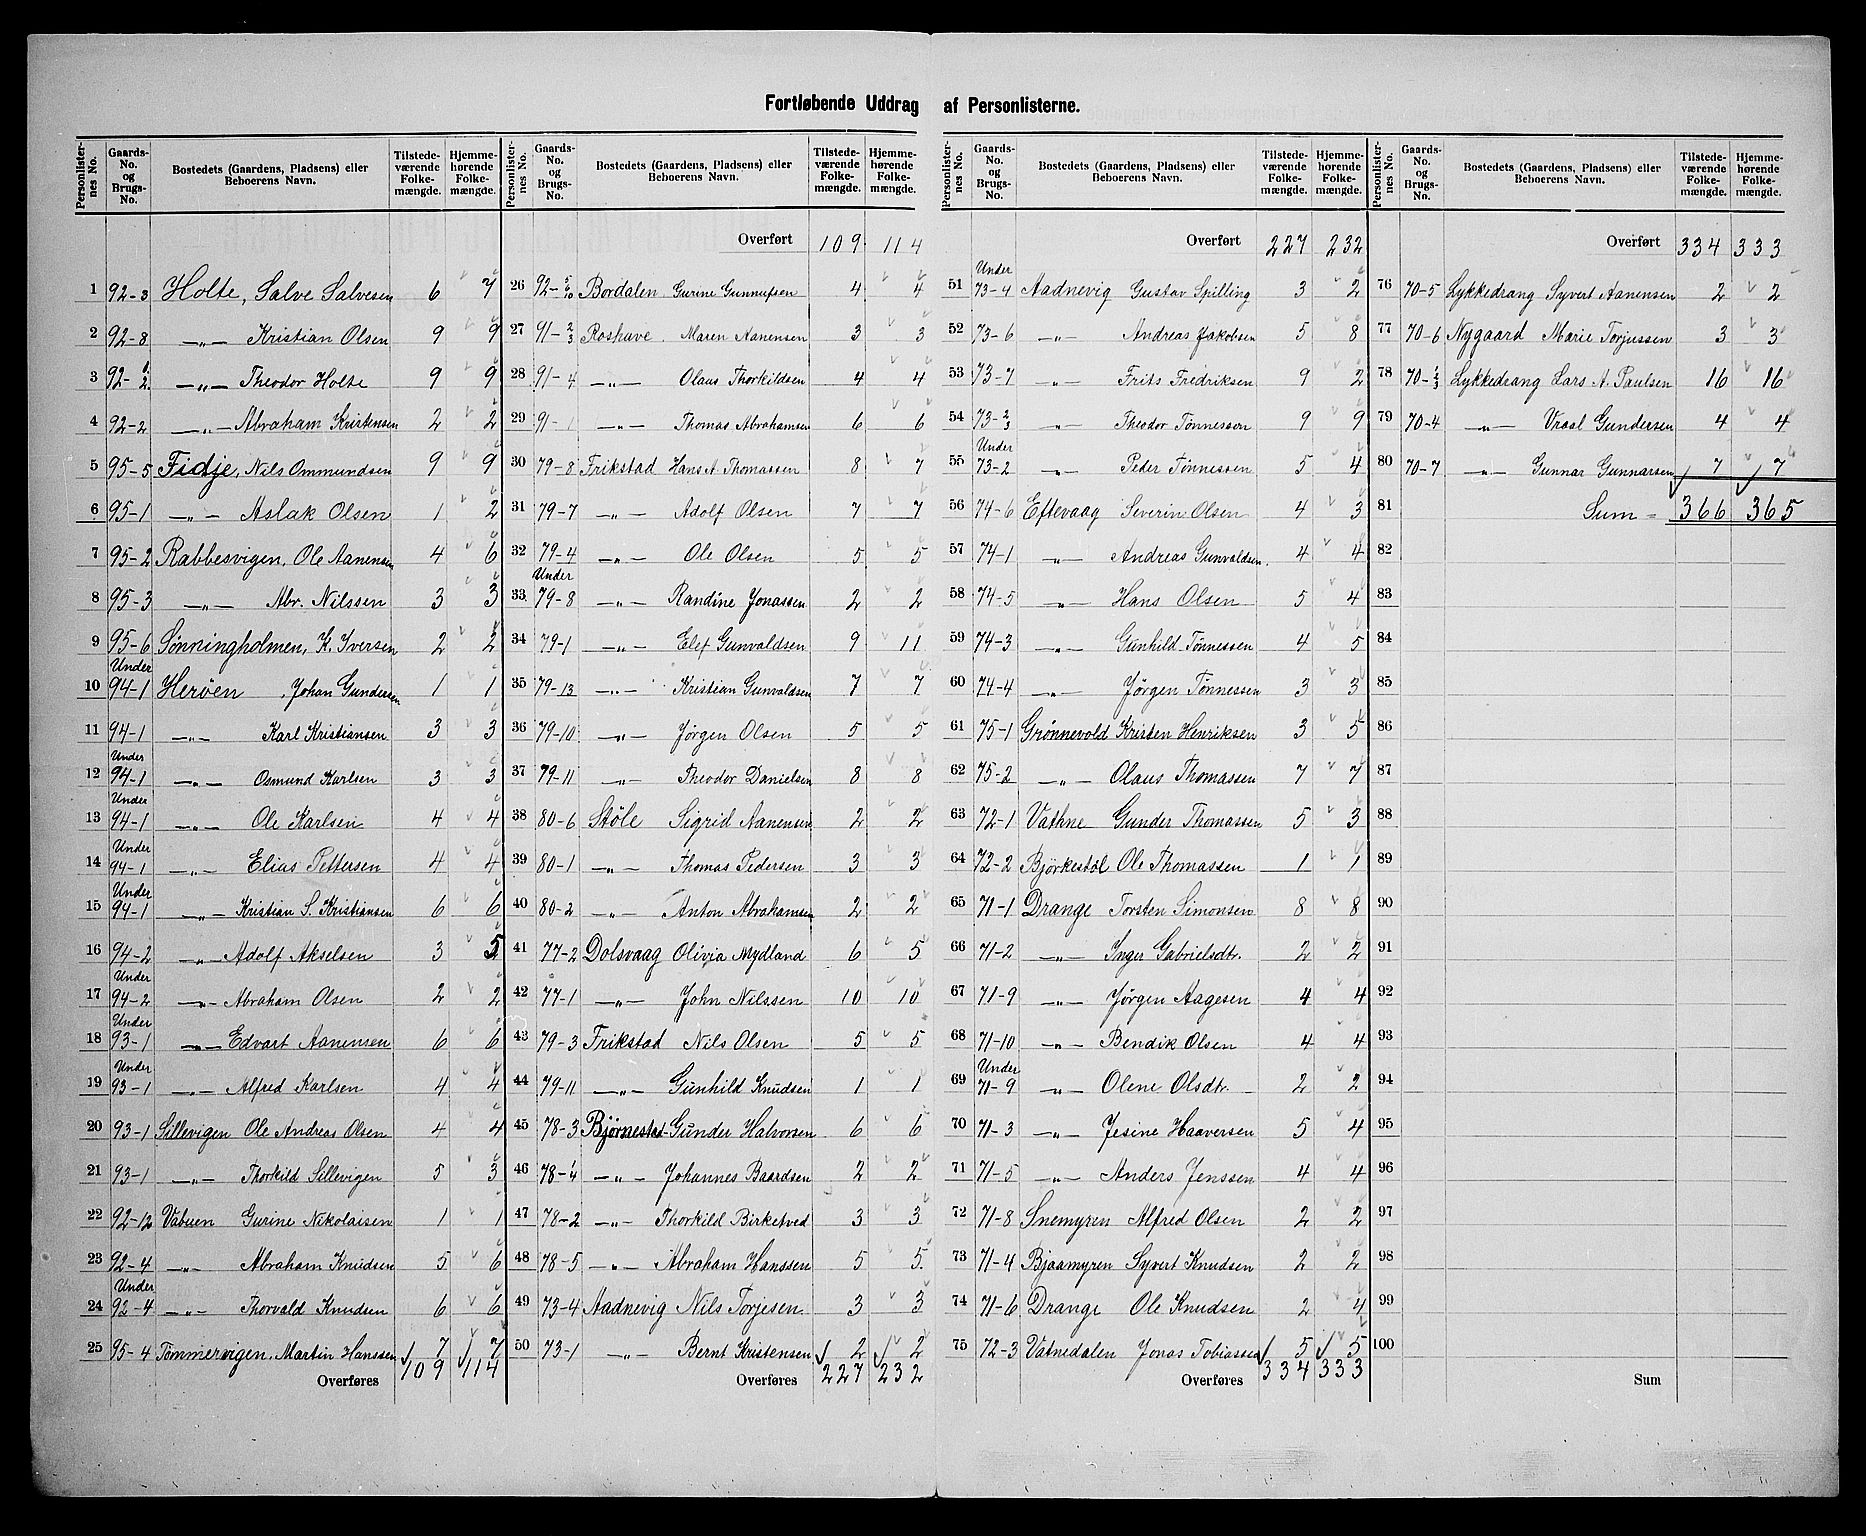 Fortløbende Uddrag af Personlisterne.
Personlister-nes No. Gaards-No. og Brugs-No. Bostedets (Gaardens, Pladsens) eller Beboerens Navn. Tilstede-værende Folke-mængde. Hjemme-hørende Folke-mængde.
1 92-3 Holte, Salve Salvesen 6 7
2 92-8 —„— Kristian Olsen 9 9
3 92-1/2 —„— Theodor Holte 9 9
4 92-2 —„— Abraham Kristensen 2 2
5 95-5 Fidje, Nils Ommundsen 9 9
6 95-1 —„— Aslak Olsen 1 2
7 95-2 Rabbesvigen, Ole Aanensen 4 6
8 95-3 —„— Abr. Nilssen 3 3
9 95-6 Sønningholmen, K. Iversen 2 2
10 Under 94-1 Herøen, Johan Gundersen 1 1
11 94-1 —„— Karl Kristiansen 3 3
12 Under 94-1 —„— Osmund Karlsen 3 3
13 Under 94-1 —„— Ole Karlsen 4 4
14 Under 94-1 —„— Elias Pettersen 4 4
15 Under 94-1 —„— Kristian S. Kristiansen 6 6
16 94-2 —„— Adolf Akselsen 3 5
17 Under 94-2 —„— Abraham Olsen 2 2
18 Under 93-1 —„— Edvart Aanensen 6 6
19 Under 93-1 —„— Alfred Karlsen 4 4
20 93-1 Sillevigen Ole Andreas Olsen 4 4
21 93-1 —„— Thorkild Sillevigen 5 3
22 92-12 Vabuen Gurine Nikolaisen 1 1
23 92-4 —„— Abraham Knudsen 5 6
24 Under 92-4 —„— Thorvald Knudsen 6 6
25 95-4 Tømmervigen, Martin Hanssen 7 7
Overføres 109 114
Personlister-nes No. Gaards-No. og Brugs-No. Bostedets (Gaardens, Pladsens) eller Beboerens Navn. Tilstede-værende Folke-mængde. Hjemme-hørende Folke-mængde.
Overført 109 114
26 92-5/6/10 Bordalen Gurine Gunnufsen 4 4
27 91-2/3 Roshave Maren Aanensen 3 3
28 91-4 —„— Olaus Thorkildsen 4 4
29 91-1 —„— Thomas Abrahamsen 6 6
30 79-8 Frikstad Hans A. Thomassen 8 7
31 79-7 —„— Adolf Olsen 7 7
32 79-4 —„— Ole Olsen 5 5
33 Under 79-8 —„— Randine Jonassen 2 2
34 79-1 —„— Elef Gunvaldsen 9 11
35 79-13 —„— Kristian Gunvaldsen 7 7
36 79-10 —„— Jørgen Olsen 5 5
37 79-11 —„— Theodor Danielsen 8 8
38 80-6 Støle Sigrid Aanensen 2 2
39 80-1 —„— Thomas Pedersen 3 3
40 80-2 —„— Anton Abrahamsen 2 2
41 77-2 Dolsvaag Olivia Mydland 6 5
42 77-1 —„— John Nilssen 10 10
43 79-3 Frikstad Nils Olsen 5 5
44 79-11 —„— Gunhild Knudsen 1 1
45 78-3 Bjørnestad Gunder Halvorsen 6 6
46 78-1/4 —„— Johannes Baardsen 2 2
47 78-2 —„— Thorkild Birketved 3 3
48 78-5 —„— Abraham Hanssen 5 5
49 73-4 Aadnevig Nils Torjesen 3 3
50 73-1 —„— Bernt Kristensen 2 2
Overføres 227 232
Personlister-nes No. Gaards-No. og Brugs-No. Bostedets (Gaardens, Pladsens) eller Beboerens Navn. Tilstede-værende Folke-mængde. Hjemme-hørende Folke-mængde.
Overført 227 232
51 Under 73-4 Aadnevig Gustav Spilling 3 2
52 73-6 —„— Andreas Jakobsen 5 8
53 73-7 —„— Frits Fredriksen 9 2
54 73-2/3 —„— Theodor Tønnesson 9 9
55 Under 73-2 —„— Peder Tønnessen 5 4
56 74-6 Eftevaag Severin Olsen 4 3
57 74-1 —„— Andreas Gunvaldsen 4 4
58 74-5 —„— Hans Olsen 5 4
59 74-3 —„— Gunhild Tønnessen 4 5
60 74-4 —„— Jørgen Tønnessen 3 3
61 75-1 Grønnevold Kristen Henriksen 3 5
62 75-2 —„— Olaus Thomassen 7 7
63 72-1 Vathne Gunder Thomassen 5 3
64 72-2 Bjørkestøl Ole Thomassen 1 1
65 71-1 Drange Torsten Simonsen 8 8
66 71-2 —„— Inger Gabrielsdtr. 2 2
67 71-9 —„— Jørgen Aagesen 4 4
68 71-10 —„— Bendik Olsen 4 4
69 Under 71-9 —„— Olene Olsdtr. 2 2
70 71-3 —„— Jesine Haaversen 5 4
71 71-5 —„— Anders Jenssen 4 4
72 71-8 Snemyren Alfred Olsen 2 2
73 71-4 Bjaamyren Syvert Knudsen 2 2
74 71-6 Drange Ole Knudsen 2 4
75 72-3 Vatnedalen Jonas Tobiassen 5 5
Overføres 334 333
Personlister-nes No. Gaards-No. og Brugs-No. Bostedets (Gaardens, Pladsens) eller Beboerens Navn. Tilstede-værende Folke-mængde. Hjemme-hørende Folke-mængde.
Overført 334 333
76 70-5 Lykkedrang Syvert Aanensen 2 2
77 70-6 Nygaard Marie Torjussen 3 3
78 70-1/2/3 Lykkedrang Lars A. Paulsen 16 16
79 70-4 —„— Vraal Gundersen 4 4
80 70-7 —„— Gunnar Gunnarsen 7 7
81 Sum = 366 365
82
83
84
85
86
87
88
89
90
91
92
93
94
95
96
97
98
99
100
Sum